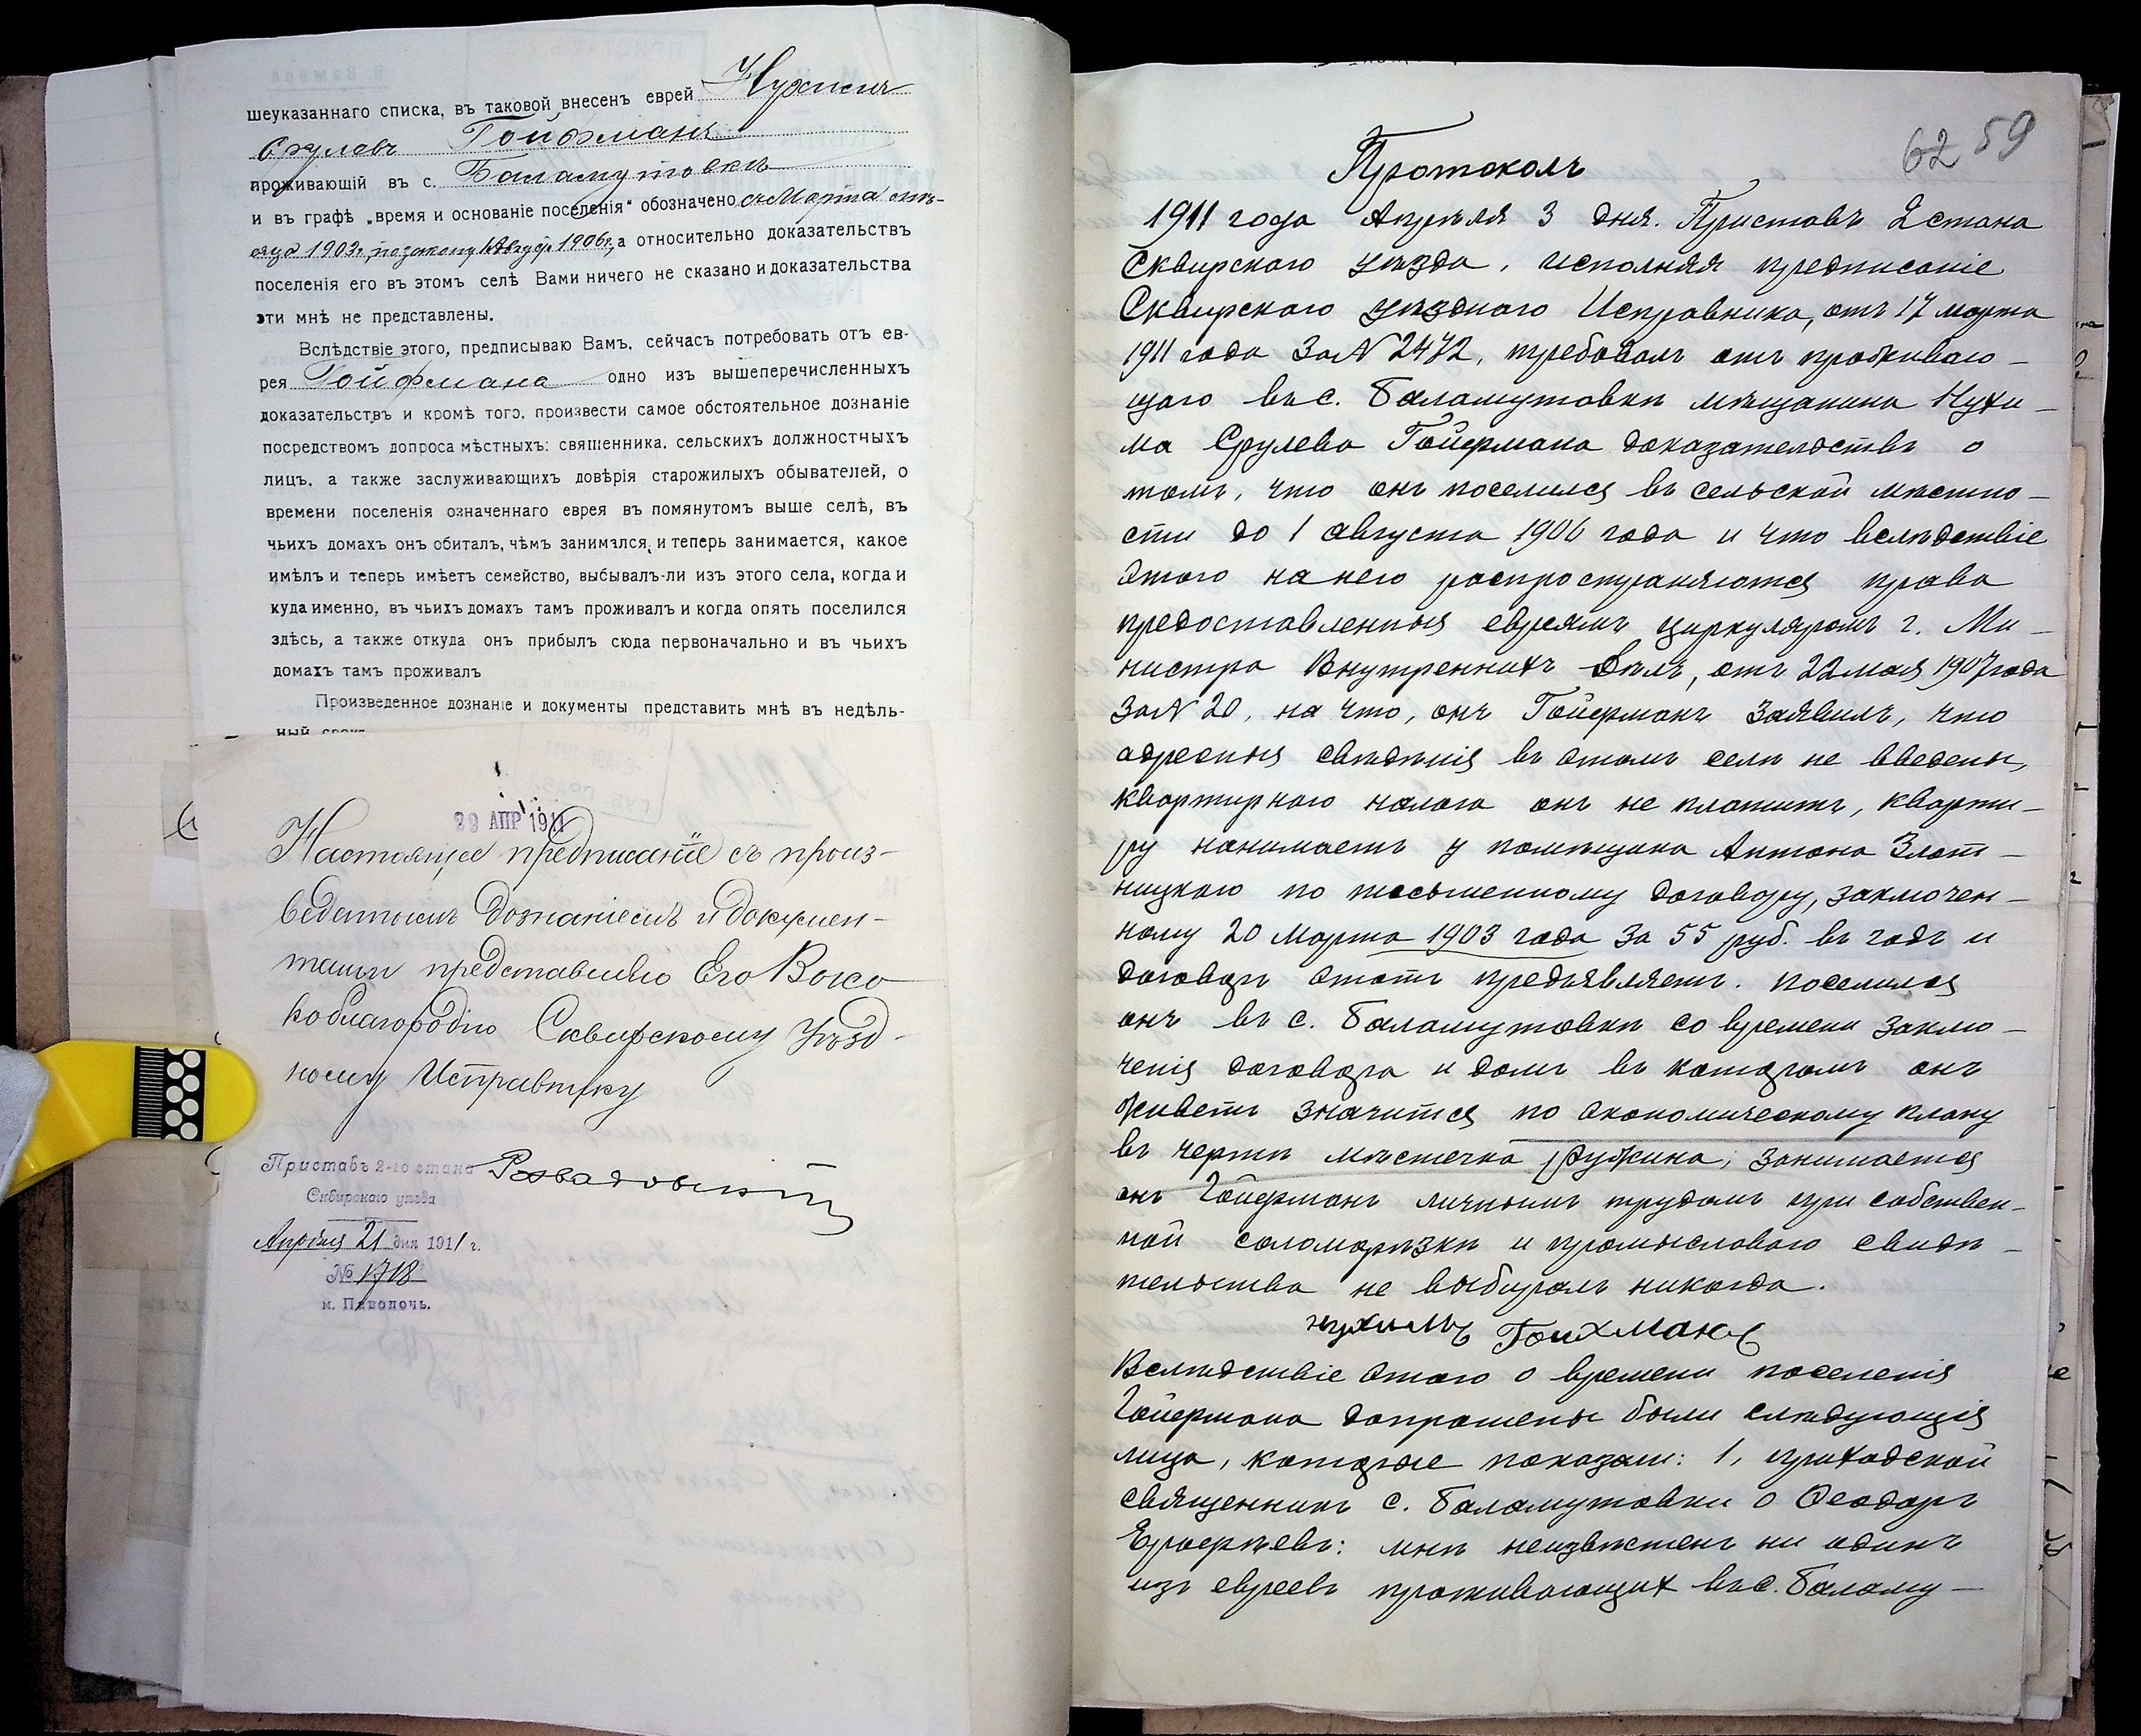 шеуказаннаго списка, въ таковой внесенъ еврей Нухимъ
Срулевъ Гойфманъ
проживающій въ с. Баламутовкѣ
и въ графѣ „время и основаніе поселенія“ обозначено съ Марта мѣ-
сяца 1903г, по закону 1 Август 1906г, а относительно доказательствъ
поселенія его въ этомъ селѣ Вами ничего не сказано и доказательства
эти мнѣ не представлены.
Вслѣдствіе этого, предписываю Вамъ, сейчасъ потребовать отъ ев-
рея Гойфмана одно изъ вышеперечисленныхъ
доказательствъ и кромѣ того, произвести самое обстоятельное дознаніе
посредствомъ допроса мѣстныхъ: священника, сельскихъ должностныхъ
лицъ, а также заслуживающихъ довѣрія старожилыхъ обывателей, о
времени поселенія означеннаго еврея въ помянутомъ выше селѣ, въ
чьихъ домахъ онъ обиталъ, чѣмъ занимался, и теперь занимается, какое
имѣлъ и теперь имѣетъ семейство, выбывалъ-ли изъ этого села, когда и
куда именно, въ чьихъ домахъ тамъ проживалъ и когда опять поселился
здѣсь, а также откуда онъ прибылъ сюда первоначально и въ чьихъ
домахъ тамъ проживалъ
Произведенное дознаніе и документы представить мнѣ въ недѣль-
ный срокъ
29 АПР 1911
Настоящее предписаніе съ произ-
веденнымъ дознаніемъ и докумен-
тами представляю Его Высо
коблагородію Сквирскому Уѣзд-
ному Исправнику
Приставъ 2-го стана
Сквирскаго уѣзда
Апрѣля 21 дня 1911 г.
№ 1718
м. Паволочь.
62 59
Протоколъ
1911 года Апрѣля 3 дня. Приставъ 2 стана
Сквирскаго уѣзда, исполняя предписаніе
Сквирскаго уѣзднаго Исправника, отъ 17 марта
1911 года За N 2472, требовалъ отъ проживаю-
щаго въ с. Баламутовкѣ мѣщанина Нухи-
ма Срулева Гойфмана доказательствъ о
томъ, что онъ поселился въ сельской мѣстно-
сти до 1 августа 1906 года и что вслѣдствіе
этого на него распространяются права
предоставленныя евреямъ циркуляромъ г. Ми-
нистра Внутреннихъ Дѣлъ, отъ 22 мая 1907 года
За N 20, на что, онъ Гойфманъ заявилъ, что
адресныя свѣдѣнія въ этомъ селѣ не введены,
квартирнаго налога онъ не платитъ, кварти-
ру нанимаетъ у помѣщика Антона Злот-
ницкаго по письменному договору, заключен-
ному 20 Марта 1903 года за 55 руб. въ годъ и
договоръ этотъ предъявляетъ. поселился
онъ въ с. Баламутовкѣ со времени заклю-
ченія договора и домъ въ которомъ онъ
живетъ значится по экономическому плану
въ чертѣ мѣстечка Ружина; занимается
онъ Гойфманъ личнымъ трудомъ при собствен-
ной соломорѣзкѣ и промысловаго свидѣ-
тельства не выбиралъ никогда.
нухимъ Гоихманъ
Вслѣдствіе этого о времени поселенія
Гойфмана допрошены были слѣдующія
лица, которые показали: 1, приходской
священникъ с. Баламутовки о Ѳеодоръ
мнѣ неизвѣстенъ ни одинъ
изъ евреевъ проживающихъ въ с. Баламу-